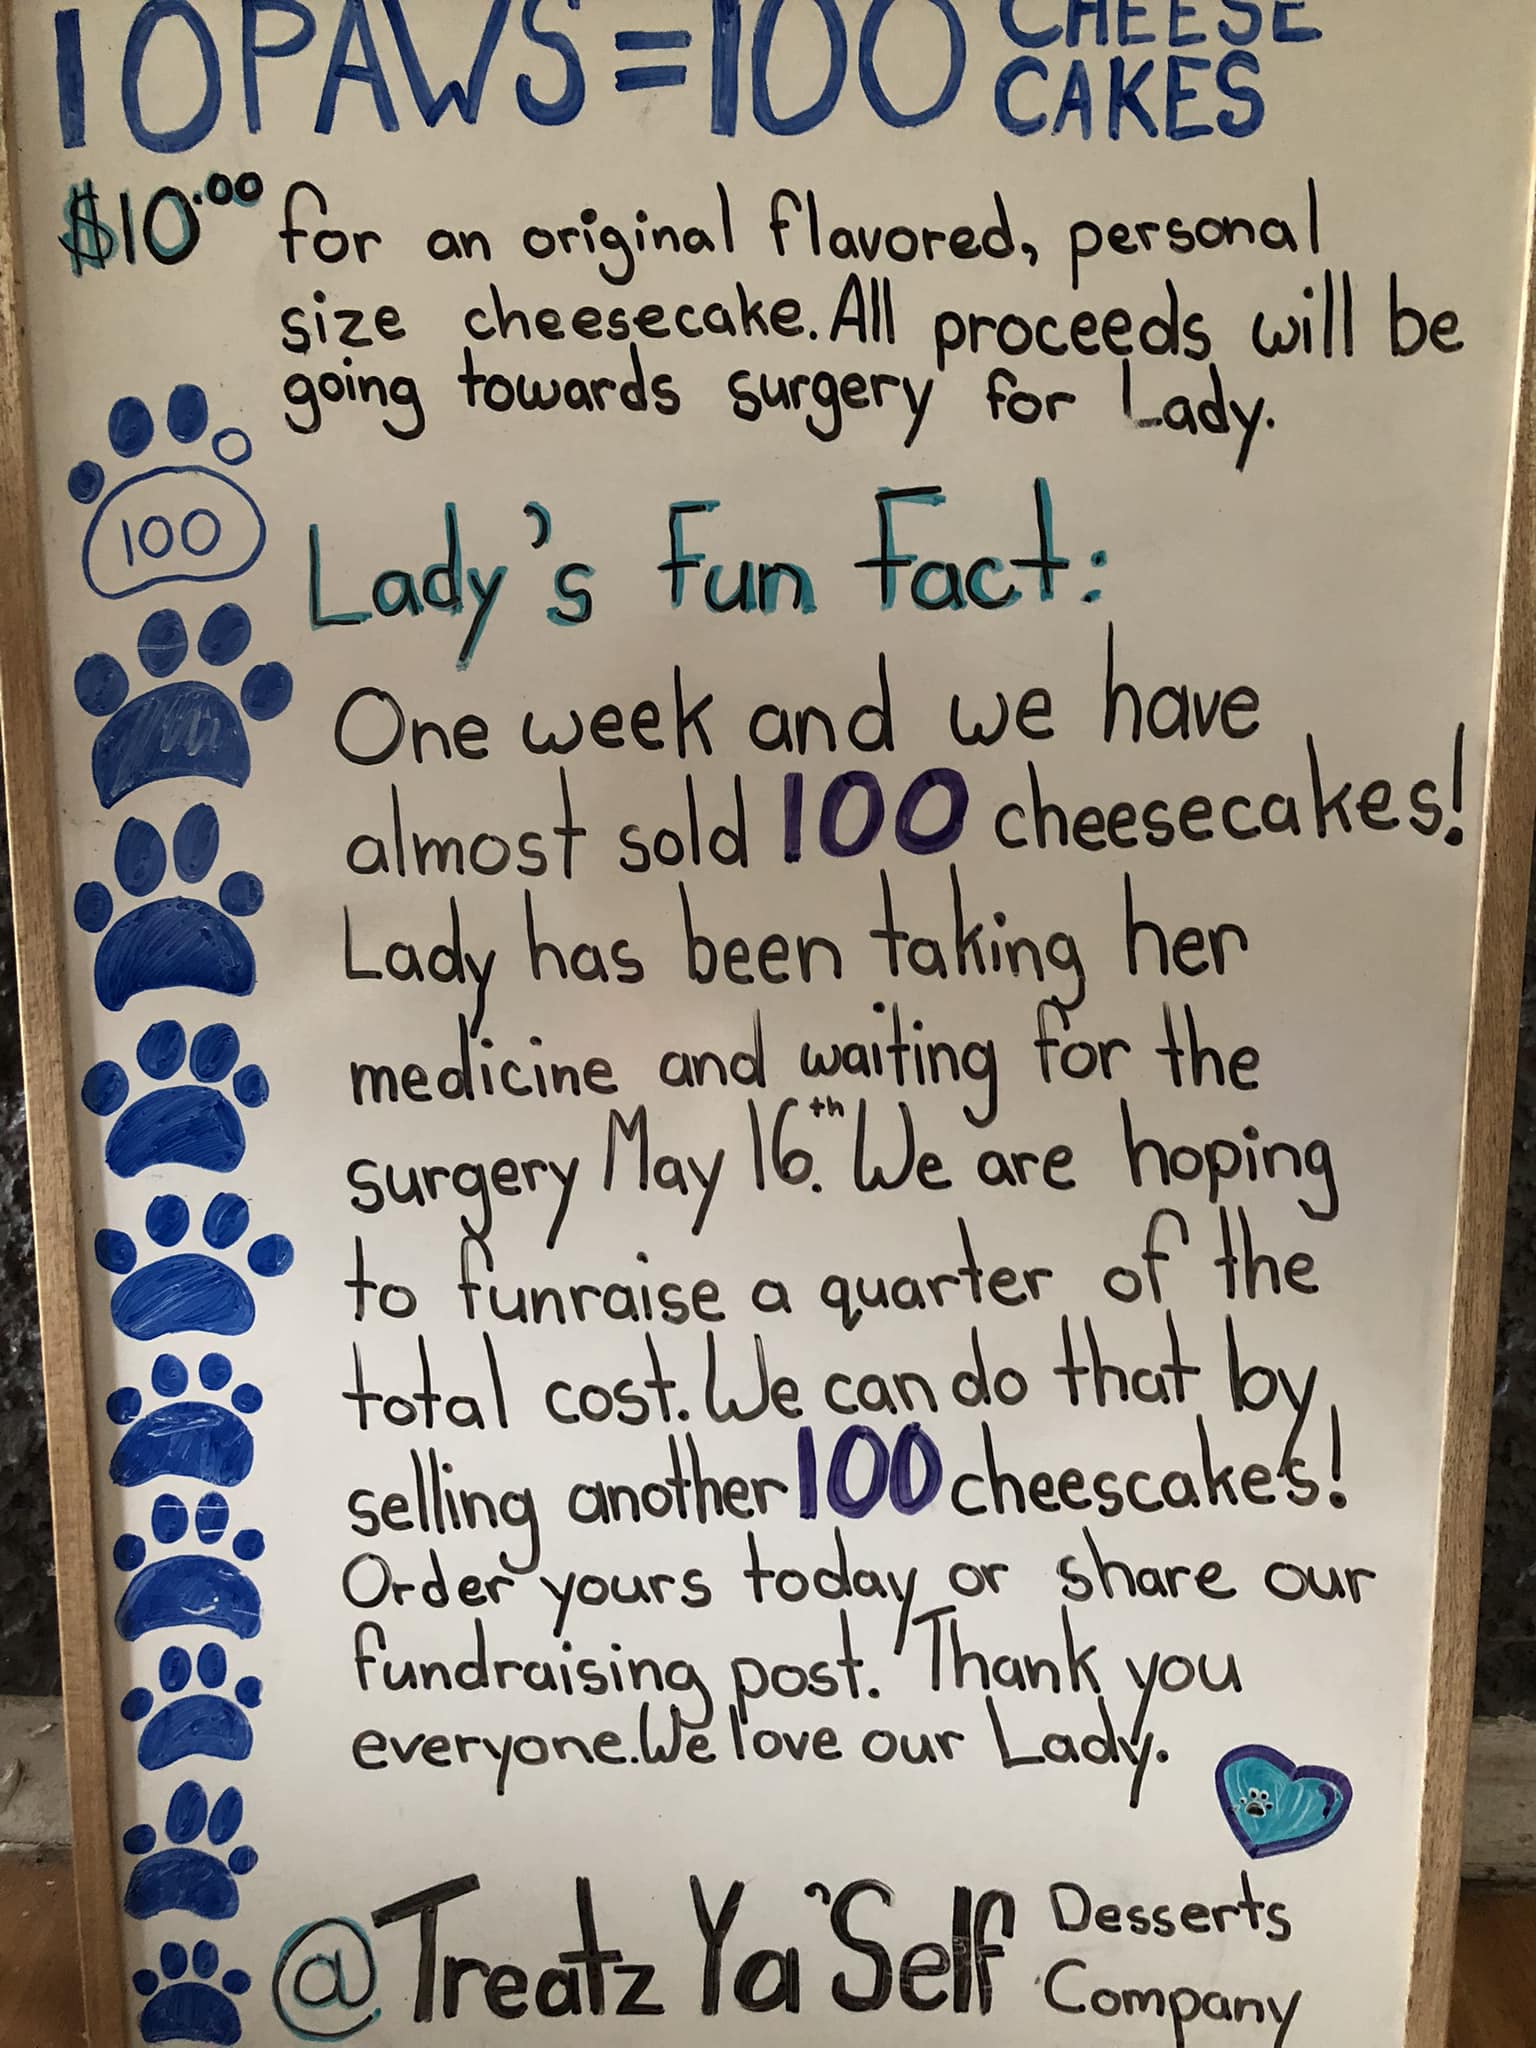 10 PAWS = 100 CHEESE CAKES
$10.00 for an original flavored, personal
size cheesecake. All proceeds will be
going towards surgery for Lady.
100
Lady's Fun Fact:
One week and we have
almost sold 100 cheesecakes!
Lady has been taking her
medicine and waiting for the
surgery May 16th. We are hoping
to funraise a quarter of the
total cost. We can do that by
selling another 100 cheescakes!
Order yours today or share our
fundraising post. Thank you
everyone. We love our Lady.
@Treatz Ya'Self Desserts
Company